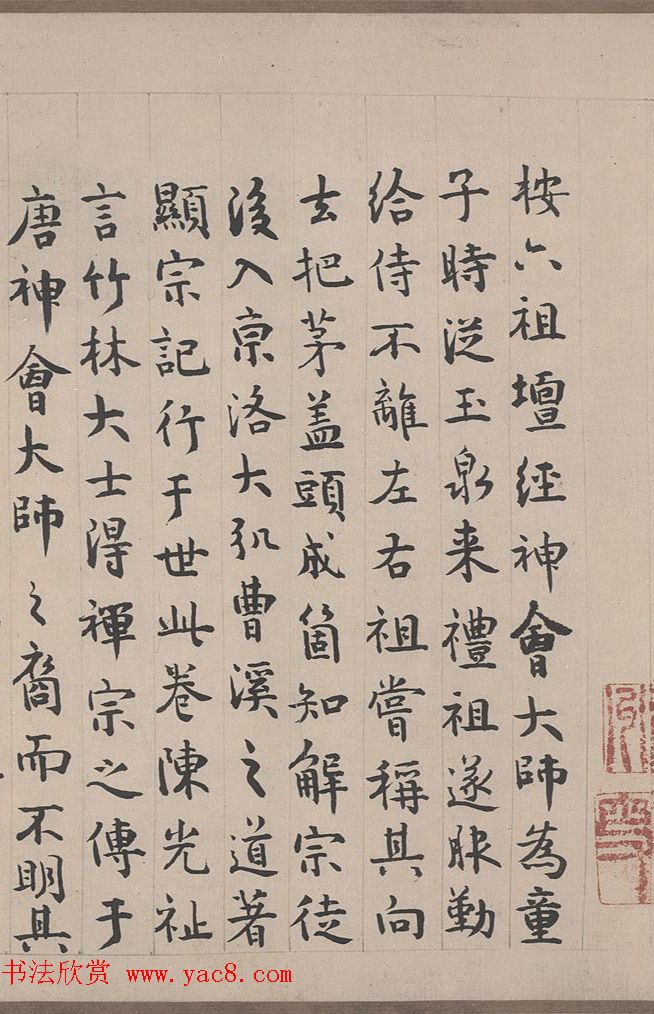 按六祖壇經神會大師為童
子時從玉泉来禮祖遂服勤
給侍不離左右祖嘗稱其向
去把茅盖頭成箇知解宗徒
後入京洛大弘曹溪之道著
顯宗記行于世此卷陳光祉
言竹林大士得禪宗之傳于
唐神會大師之裔而不明其
书法欣赏 www.yac8.com